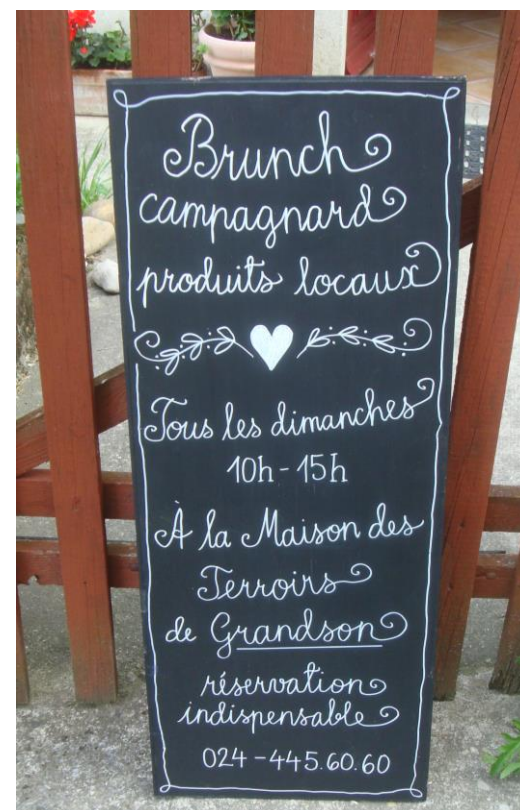 Brunch
campagnard
produits locaux
Tous les dimanches
10h - 15h
À la Maison des
Terroirs
de Grandson
réservation
indispensable
024 - 445.60.60